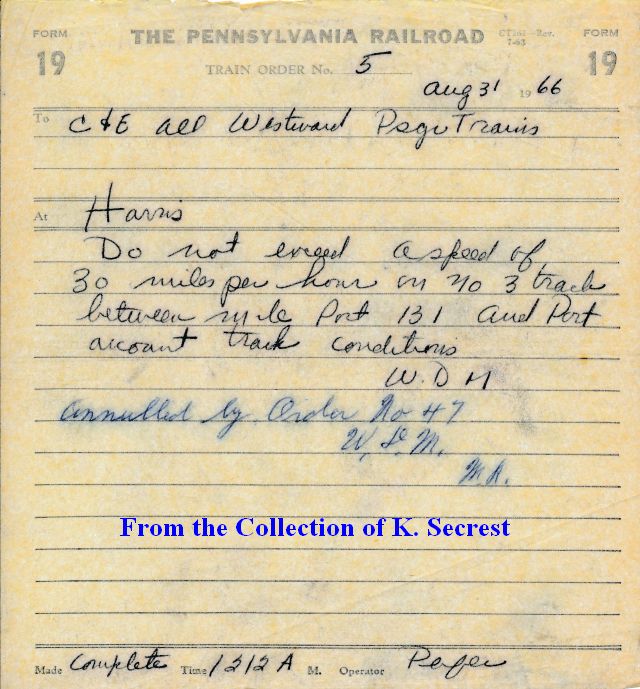 FORM 19
THE PENNSYLVANIA RAILROAD
CT161 -Rev. 7-63
FORM 19
TRAIN ORDER No. 5
Aug 31 1966
To C&E all Westward Psgr Trains
At Harris
Do not exceed a speed of
30 miles per hour on No 3 track
between mile Post 131 and Port
account track conditions
W. D M
Annulled by Order No 47
W. D. M.
M.R.
From the Collection of K. Secrest
Made Complete Time 1212 A M. Operator